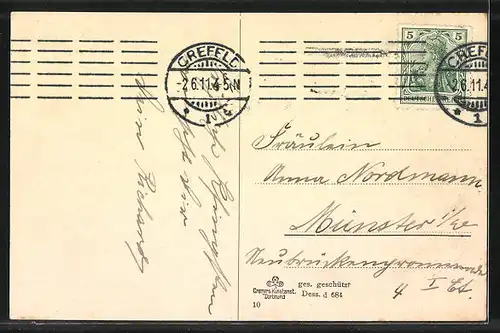 CREFELD
-2.6.11.4-5N
* 1 *
5 5
DEUTSCHES REICH
CREFELD
2.6.11.4
* 1
Fräulein
Anna Nordmann
Münster i/w
Neubrückenpromenade
4 I Et.
Pfingsten
Dein Richard
Cramers Kunstanst.
Dortmund
10
ges. geschützt
Dess. d 684